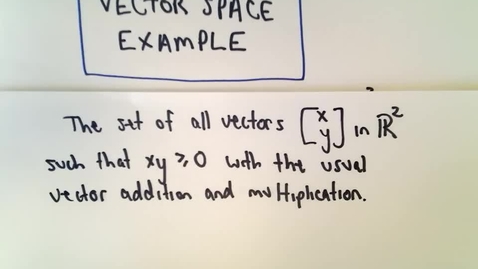 VECTOR SPACE
EXAMPLE
The set of all vectors [x y] in ℝ²
such that xy ≥ 0 with the usual
vector addition and multiplication.